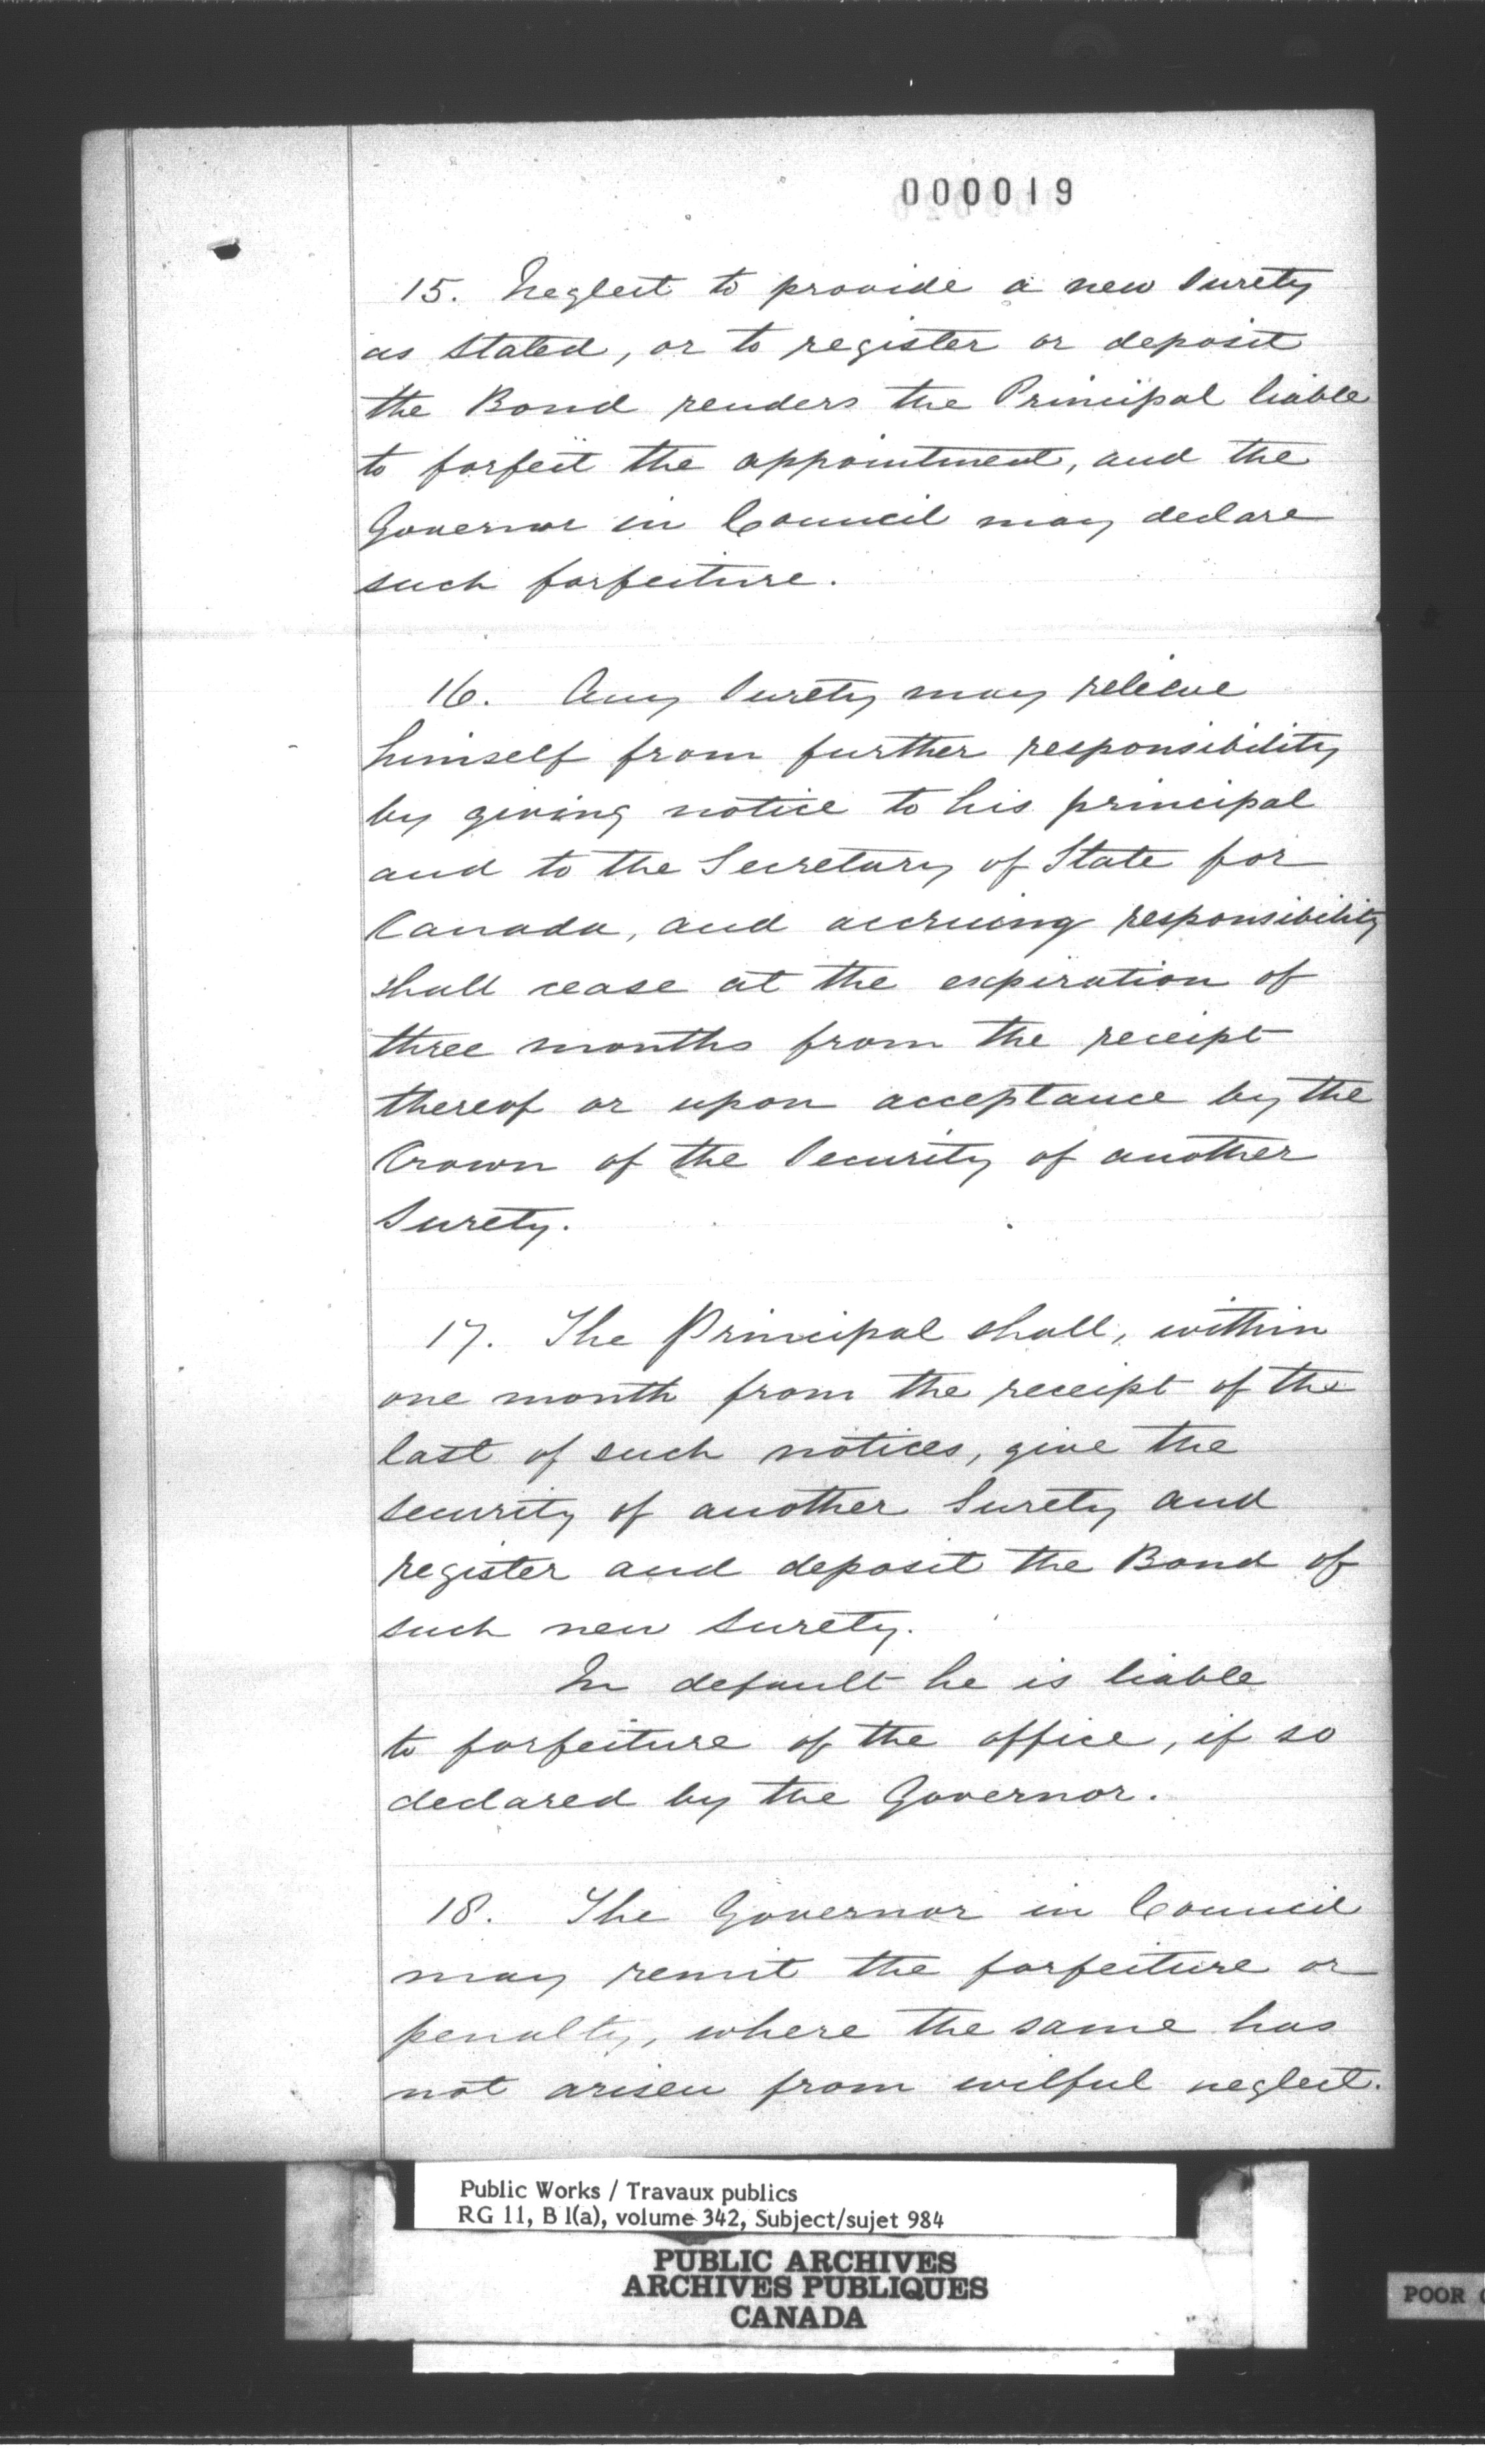 000019
15. Neglect to provide a new Surety
as stated, or to register or deposit
the Bond renders the Principal liable
to forfeit the appointment, and the
Governor in Council may declare
such forfeiture.
16. Any Surety may relieve
himself from further responsibility
by giving notice to his principal
and to the Secretary of State for
Canada, and accruing responsibility
shall cease at the expiration of
three months from the receipt
thereof or upon acceptance by the
Crown of the Security of another
Surety.
17. The Principal shall, within
one month from the receipt of the
last of such notices, give the
security of another Surety and
register and deposit the Bond of
such new Surety.
In default he is liable
to forfeiture of the office, if so
declared by the Governor.
18. The Governor in Council
may remit the forfeiture or
penalty, where the same has
not arisen from wilful neglect.
Public Works / Travaux publics
RG 11, B 1(a), volume 342, Subject/sujet 984
PUBLIC ARCHIVES
ARCHIVES PUBLIQUES
CANADA
POOR